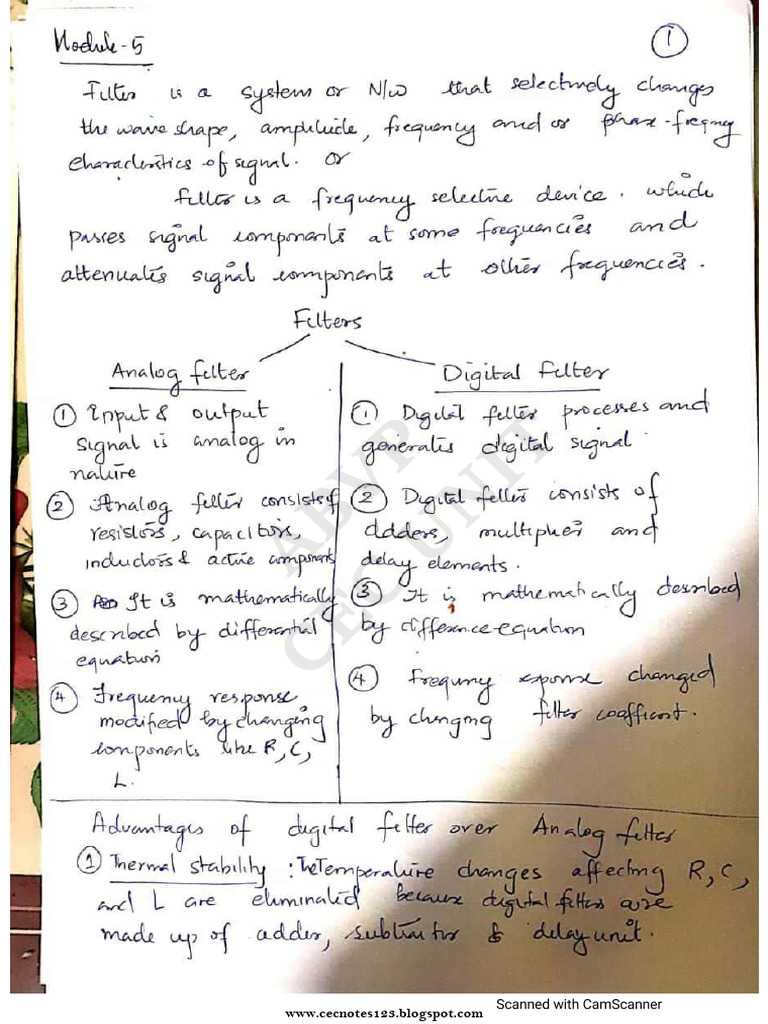 Module-5
1
Filter is a system or N/W that selectively changes
the wave shape, amplitude, frequency and or phase-freqny
characteristics of signal. or
Filter is a frequency selective device. which
passes signal components at some frequencies and
attenuates signal components at other frequencies.
Filters
Analog filter
① Input & output
signal is analog in
nature
② Analog filter consists of
resistors, capacitors,
inductors & active components
③ It is mathematically
described by differential
equation
④ Frequency response
modified by changing
components like R, C,
L.
Digital Filter
① Digital filter processes and
generates digital signal.
② Digital filter consists of
adders, multiplier and
delay elements.
③ It is mathematically described
by difference equation
④ Frequny esponse changed
by chnging filter coefficent.
ABVP
CEC UNIT
Advantages of digital filter over Analog filter
① Thermal stability : The Temperature changes affecting R, C,
and L are eliminated because digital filters are
made up of adder, subtractor & delay unit.
Scanned with CamScanner
www.cecnotes123.blogspot.com